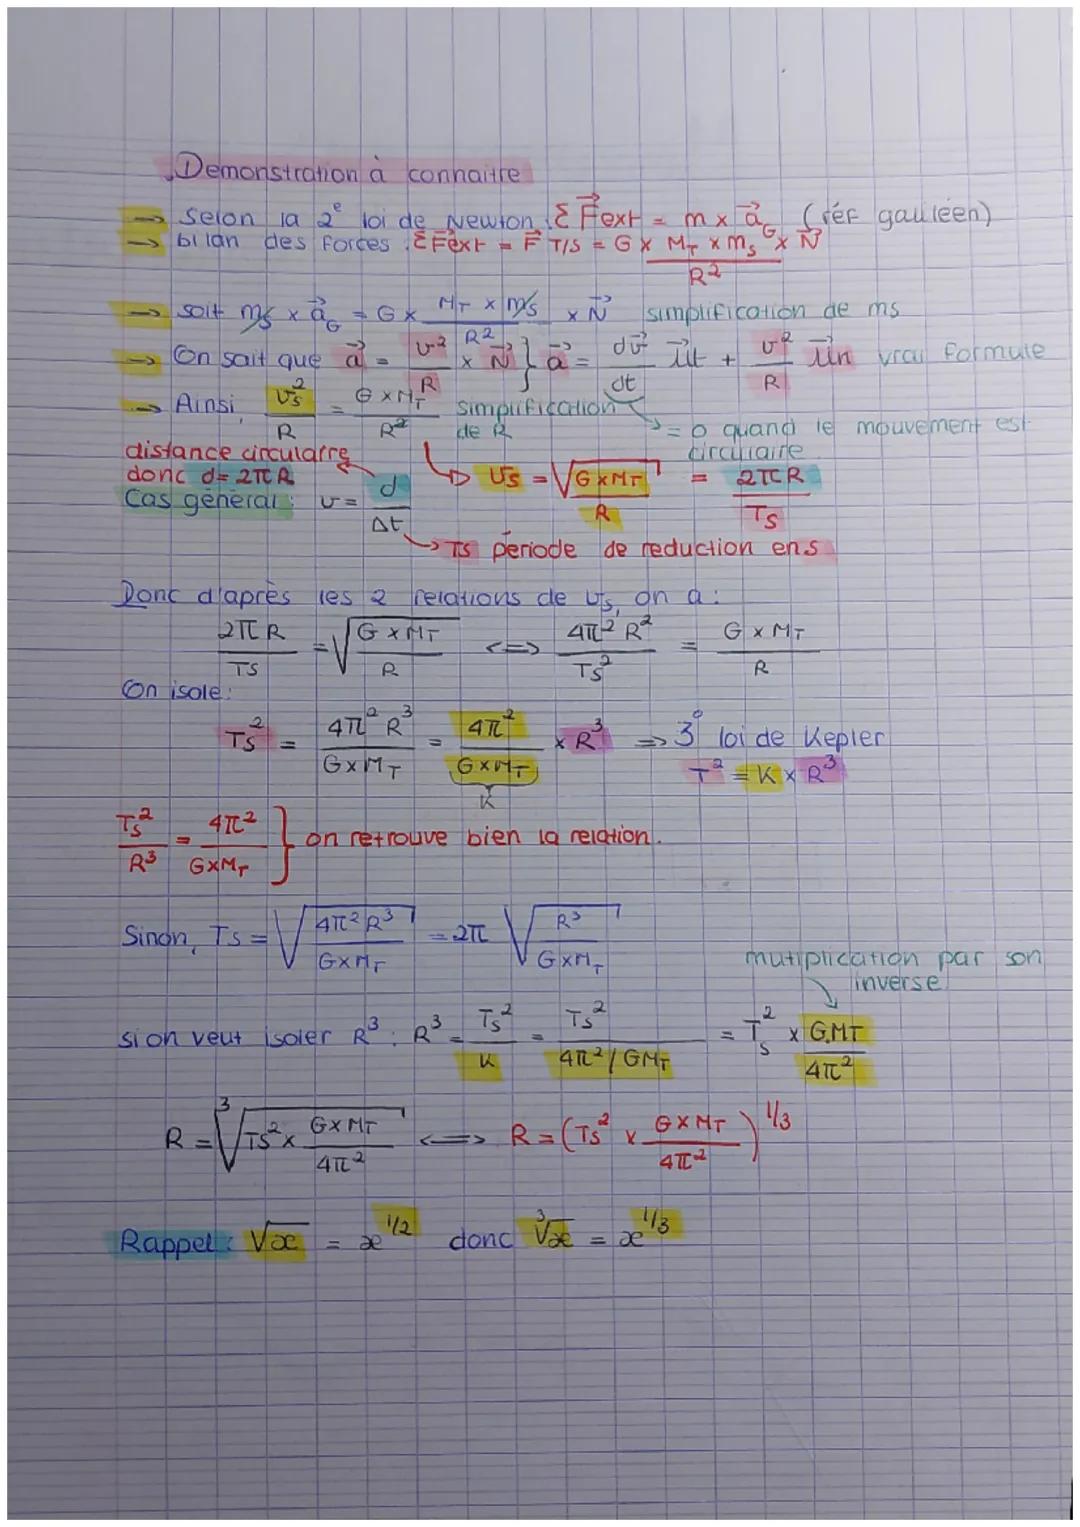 ① Demonstration à connaitre
→ Selon la 2e loi de Newton Σ F⃗ext = m x a⃗G (réf galiléen)
→ bilan des forces : Σ F⃗ext = F⃗ T/S = G x (MT x mS / R²) x N⃗
→ soit mS x a⃗G = G x (MT x mS / R²) x N⃗ simplification de ms
→ On sait que a⃗ = (v² / R) x N⃗ } a⃗ = (dv⃗ / dt) u⃗t + (v² / R) u⃗n vrai formule
→ Ainsi, vS² / R = G x MT / R² simplification de R
= 0 quand le mouvement est circulaire
distance circulaire
donc d = 2πR
Cas général : v = d / Δt
→ vS = √(G x MT / R) = 2πR / TS
→ TS période de reduction en s
Donc d'après les 2 relations de vS, on a :
2πR / TS = √(G x MT / R) <=> 4π² R² / TS² = G x MT / R
On isole :
TS² = 4π² R³ / (G x MT) = 4π² / (G x MT) x R³ => 3° loi de Kepler
K
T² = K x R³
TS² / R³ = 4π² / (G x MT) } on retrouve bien la relation.
Sinon, TS = √(4π² R³ / (G x MT)) = 2π √(R³ / (G x MT))
mutiplication par son inverse
si on veut isoler R³ : R³ = TS² / K = TS² / (4π² / GMT) = TS² x G.MT / 4π²
R = ³√(TS² x G x MT / 4π²) <=> R = (TS² x G x MT / 4π²)^1/3
Rappel : √x = x^1/2 donc ³√x = x^1/3